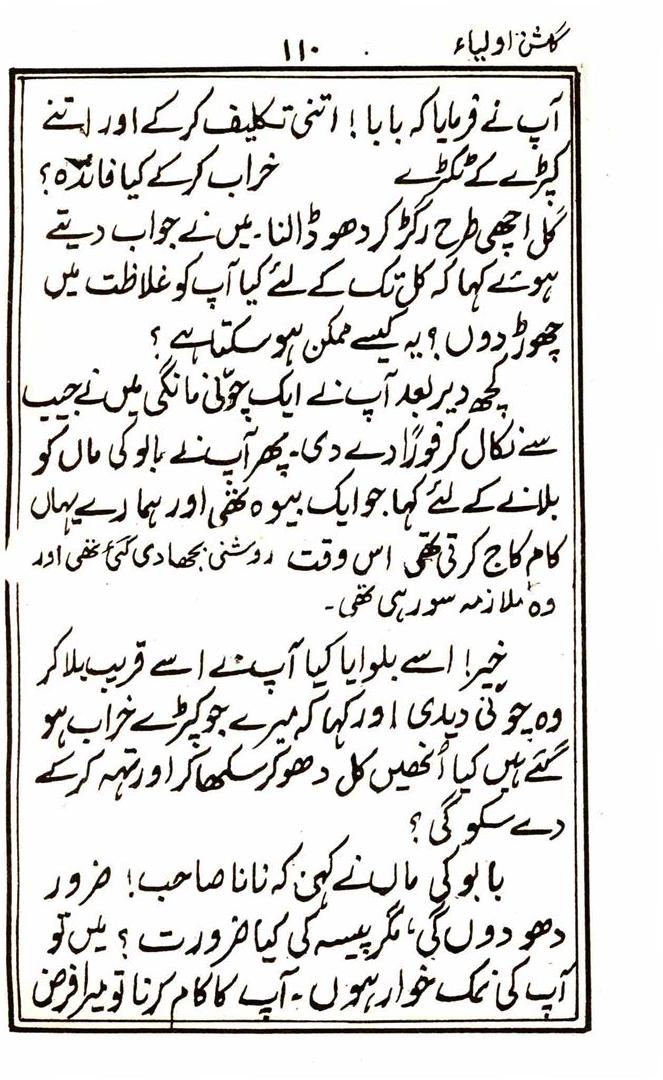 گلشن اولیاء ۱۱۰
آپ نے فرمایا کہ بابا! اتنی تکلیف کرکے اور اتنے
کپڑے کے ٹکڑے خراب کرکے کیا فائدہ؟
کل اچھی طرح رگڑ کر دھو ڈالنا۔ میں نے جواب دیتے
ہوئے کہا کہ کل تک کے لئے کیا آپ کو غلاظت میں
چھوڑ دوں؟ یہ کیسے ممکن ہو سکتا ہے؟
کچھ دیر بعد آپ نے ایک چونّی مانگی میں نے جیب
سے نکال کر فوراً دے دی۔ پھر آپ نے بالو کی ماں کو
بلانے کے لئے کہا جو ایک بیوہ تھی اور ہمارے یہاں
کام کاج کرتی تھی اس وقت روشنی بجھا دی گئی تھی اور
وہ ملازمہ سو رہی تھی۔
خیر! اسے بلوایا گیا آپ نے اسے قریب بلا کر
وہ چونی دیدی اور کہا کہ میرے جو کپڑے خراب ہو
گئے ہیں کیا اُنھیں کل دھو کر سکھا کر اور تہہ کرکے
دے سکو گی؟
بابو کی ماں نے کہن کہ نانا صاحب! ضرور
دھو دوں گی، مگر پیسہ کی کیا ضرورت؟ میں تو
آپ کی نمک خوار ہوں۔ آپ کا کام کرنا تو میرا فرض